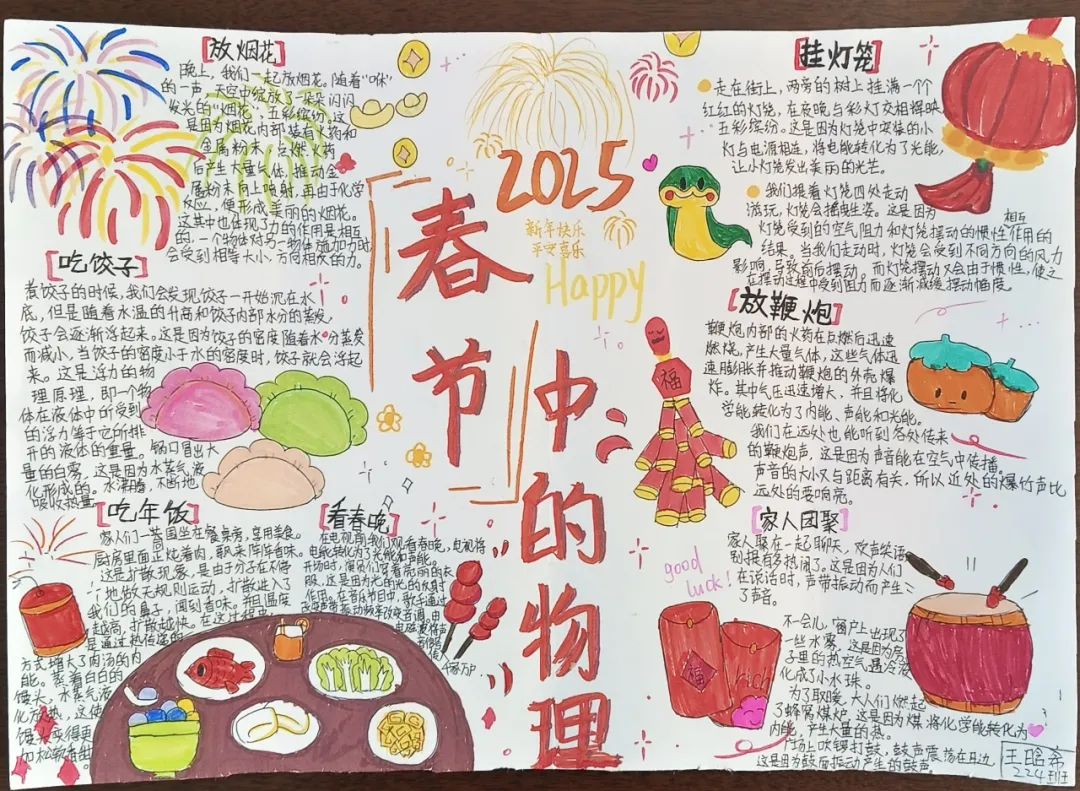 [放烟花]
晚上，我们一起放烟花。随着“咻”
的一声，天空中绽放了一朵朵闪闪
发光的“烟花”，五彩缤纷。这
是因为烟花内部装有火药和
金属粉末，点燃火药
后产生大量气体，推动金
属粉末向上喷射，再由于化学
反应，便形成美丽的烟花。
这其中也体现了力的作用是相互
的，一个物体对另一物体施加力时，
会受到相等大小、方向相反的力。
[吃饺子]
煮饺子的时候，我们会发现饺子一开始沉在水
底，但是随着水温的升高和饺子内部水分的蒸发，
饺子会逐渐浮起来。这是因为饺子的密度随着水分蒸发
而减小，当饺子的密度小于水的密度时，饺子就会浮起
来。这是浮力的物
理原理，即一个物
体在液体中所受到
的浮力等于它所排
开的液体的重量。锅口冒出大
量的白雾，这是因为水蒸气液
化形成的。水沸腾，不断地
吸收热量。
[吃年饭]
家人们一起围坐在餐桌旁，享用美食。
厨房里面正炖着肉，飘来阵阵香味。
这是扩散现象，是由于分子在不停
地做无规则运动，扩散进入了
我们的鼻子，闻到香味。
越高，扩散越快。在这过程
是通过热传递的
方式增大了肉汤的内
能。蒸着白白的
馒头，水蒸气液
化放热，这使
馒头变得更
加松软香甜。
[看春晚]
在电视前我们观看春晚，电视将
电能转化为了光能和声能。
开场时，演员们穿着亮丽的衣
服，这是因为光的反射
作用。在音乐节目中，歌手通过
改变声带振动频率改变音调。由
电磁波将声
2025
新年快乐
平安喜乐
Happy
春节
中的物理
[挂灯笼]
走在街上，两旁的树上挂满一个个
红红的灯笼，在夜晚与彩灯交相辉映，
五彩缤纷。这是因为灯笼中安装的小
灯与电源相连，将电能转化为了光能，
让小灯笼发出美丽的光芒。
我们提着灯笼四处走动
游玩，灯笼会摇曳生姿。这是因为
灯笼受到的空气阻力和灯笼摆动的惯性相互作用的
结果。当我们走动时，灯笼会受到不同方向的风力
影响，导致前后摆动。而灯笼摆动又会由于惯性，使之
在摆动过程中受到阻力而逐渐减缓摆动幅度。
[放鞭炮]
鞭炮内部的火药在点燃后迅速
燃烧，产生大量气体，这些气体迅
速膨胀并推动鞭炮的外壳爆
炸。其中气压迅速增大，并且将化
学能转化为了内能、声能和光能。
我们在远处也能听到各处传来
的鞭炮声，这是因为声音能在空气中传播。
声音的大小又与距离有关，所以近处的爆竹声比
远处的要响亮。
福
[家人团聚]
家人聚在一起聊天，欢声笑语
别提有多热闹了。这是因为人们
在谈话时，声带振动而产生
了声音。
不一会儿，窗户上出现了
一些水雾，这是因为房
子里的热空气遇冷液
化成了小水珠。
为了取暖，大人们燃起
了蜂窝煤炉，这是因为煤将化学能转化为
内能，产生大量的热。
广场上吹锣打鼓，鼓声震荡在耳边，
这是因为鼓面振动产生的鼓声。
good
luck!
福
rich
王晗希
224班